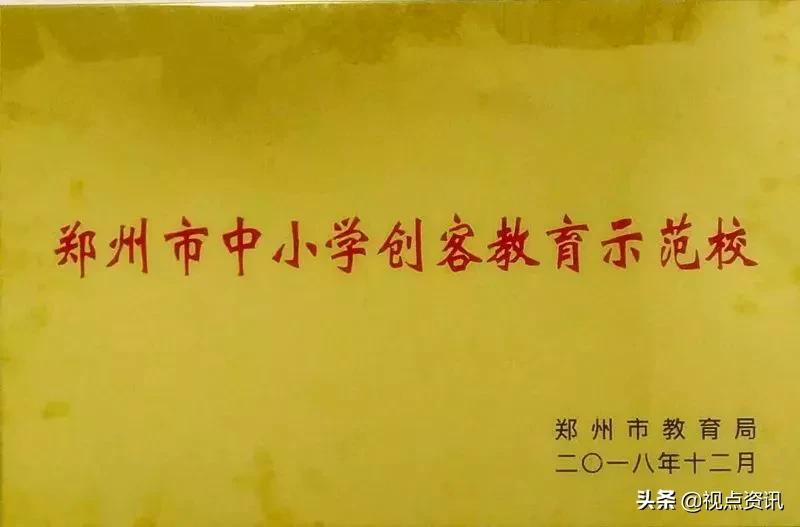 郑州市中小学创客教育示范校
郑州市教育局
二〇一八年十二月
头条 @视点资讯